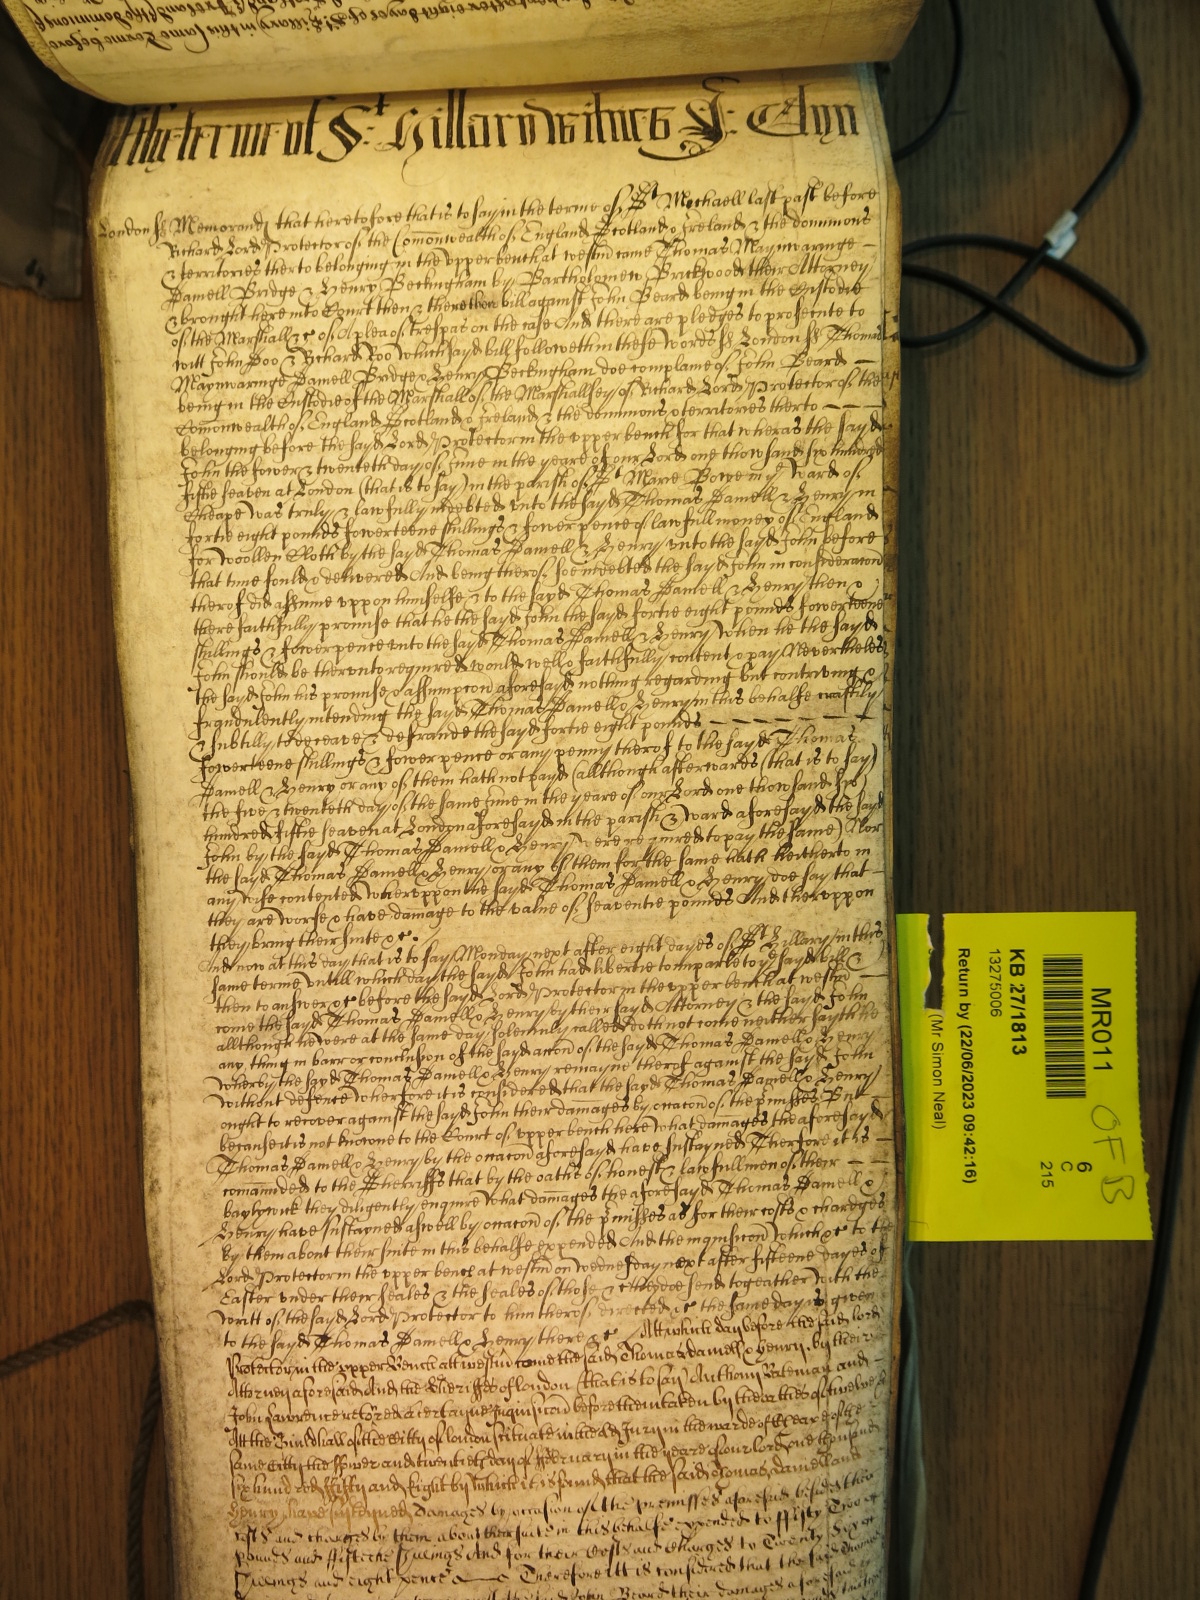 of the terme of St: Hillary witnes J: Glyn
London ss Memorand that heretofore that is to say in the terme of St Mychaell last past before
Richard Lord Protector of the Comonwealth of England Scotland & Ireland & the dominions
& territories therto belonging in the upper bench at westm came Thomas Maynwaringe
Damell Bridge & Henry Beckingham by Bartholomew Brickwood their Attorney
& brought here into Court then & there their bill against John Beard being in the Custodie
of the Marshall &c of A plea of trespas on the case And there are pledges to prosecute to
witt John Doo & Richard Roo which sayd bill followeth in these words ss London ss Thomas
Maynwaringe Damell Bridge & Henry Beckingham doe complaine of John Beard
being in the Custodie of the Marshall of the Marshallsey of Richard Lord Protector of the
Comonwealth of England Scotland & Ireland & the dominions & territories therto
belonging before the sayd Lord Protector in the upper bench for that wheras the sayd
John the fower & twenteth day of June in the yeare of our Lord one thowsand six hundred
fiftie seaven at London (that is to say) in the parish of St Marie Bowe in ye Ward of
Cheape was truly & lawfully indebted unto the sayd Thomas Damell & Henry in
fortie eight pounds fowerteene shillings & fower pence of lawfull money of England
for woollen Cloth by the sayd Thomas Damell & Henry unto the sayd John before
that time sould & delivered And being therof soe indebted the sayd John in consideracon
therof did assume uppon himselfe & to the sayd Thomas Damell & Henry then &
there faithfully promise that he the sayd John the sayd fortie eight pounds fowerteene
shillings & fower pence unto the sayd Thomas Damell & Henry when he the sayd
John should be therunto required would well & faithfully content & pay Neverthelesse
the sayd John his promise & assumpcon aforesayd nothing regarding but contriving &
fraudulently intending the sayd Thomas Damell & Henry in this behalfe craftily
& subtilly to deceave & defraude the sayd fortie eight pounds
fowerteene shillings & fower pence or any penny therof to the sayd Thomas
Damell & Henry or any of them hath not payd (allthough afterwards (that is to say)
the five & twenteth day of the same June in the yeare of our Lord one thowsand six
hundred fiftie seaven at London aforesayd in the parish & ward aforesayd the sayd
John by the sayd Thomas Damell & Henry were required to pay the same) Nor
the sayd Thomas Damell & Henry or any of them for the same hath hitherto in
any wise contented wheruppon the sayd Thomas Damell & Henry doe say that
they are worse & have damage to the value of seaventie pounds And theruppon
they bring their suite &c
And now at this day that is to say Monday next after eight dayes of St Hillary in this
same terme untill which day the sayd John had libertie to imparle to ye sayd bill &
then to answer &c before the sayd Lord Protector in the upper bench at westm
come the sayd Thomas Damell & Henry by their sayd Attorney & the sayd John
allthough he were at the same day solemnly called doth not come neither sayth he
any thing in barr or conclusion of the sayd accon of the sayd Thomas Damell & Henry
wherby the sayd Thomas Damell & Henry remayne therof against the sayd John
without defence wherfore it is considered that the sayd Thomas Damell & Henry
ought to recover against the sayd John their damages by occacon of the premisses But
because it is not knowne to the Court of upper bench here what damages the aforesayd
Thomas Damell & Henry by the occacon aforesayd have sustayned Therfore it is
comannded to the Sherriffs that by the oaths of honest & lawfull men of their
baylywick they diligently enquire what damages the aforesayd Thomas Damell &
Henry have sustayned aswell by occacon of the premisses as for their costs & chardges
by them about their suite in this behalfe expended And the inquisicon which &c to the
Lord Protector in the upper bench at westm on wednesday next after fifteene dayes of
Easter under their seales & the seales of those & they doe send togeather with the
writt of the sayd Lord Protector to him therof directed &c the same day is given
to the sayd Thomas Damell & Henry there &c Att which day before the said Lord
Protector in the upper Bench att westm come the said Thomas Damell & Henry by their
Attorney aforesaid And the Sheriffes of London (that is to say) Anthony Bateman and
John Lawrence retorned a certayne Inquisicon before them taken by the oathes of twelve
Att the Guildhall of the Citty of London scituate in the Jury in the warde of Cheape of the
same Citty the fower and twentieth day of February in the yeare of our Lord one thousand
six hundred fifty and Eight by which it is found that the said Thomas Damell and
Henry have sustayned Damages by occasion of the premisses aforesaid besides their
costs and charges by them about their suite in this behalfe expended to fifty Two
pounds and fifteene shillings And for their Costs and charges to Twenty six
shillings and eight pence Therefore itt is considered that the said Thomas
John Beard their damages aforesaid
MR011
KB 27/1813
13275006
Return by (22/06/2023 09:42:16)
(Mr Simon Neal)
6
C
215
OF B